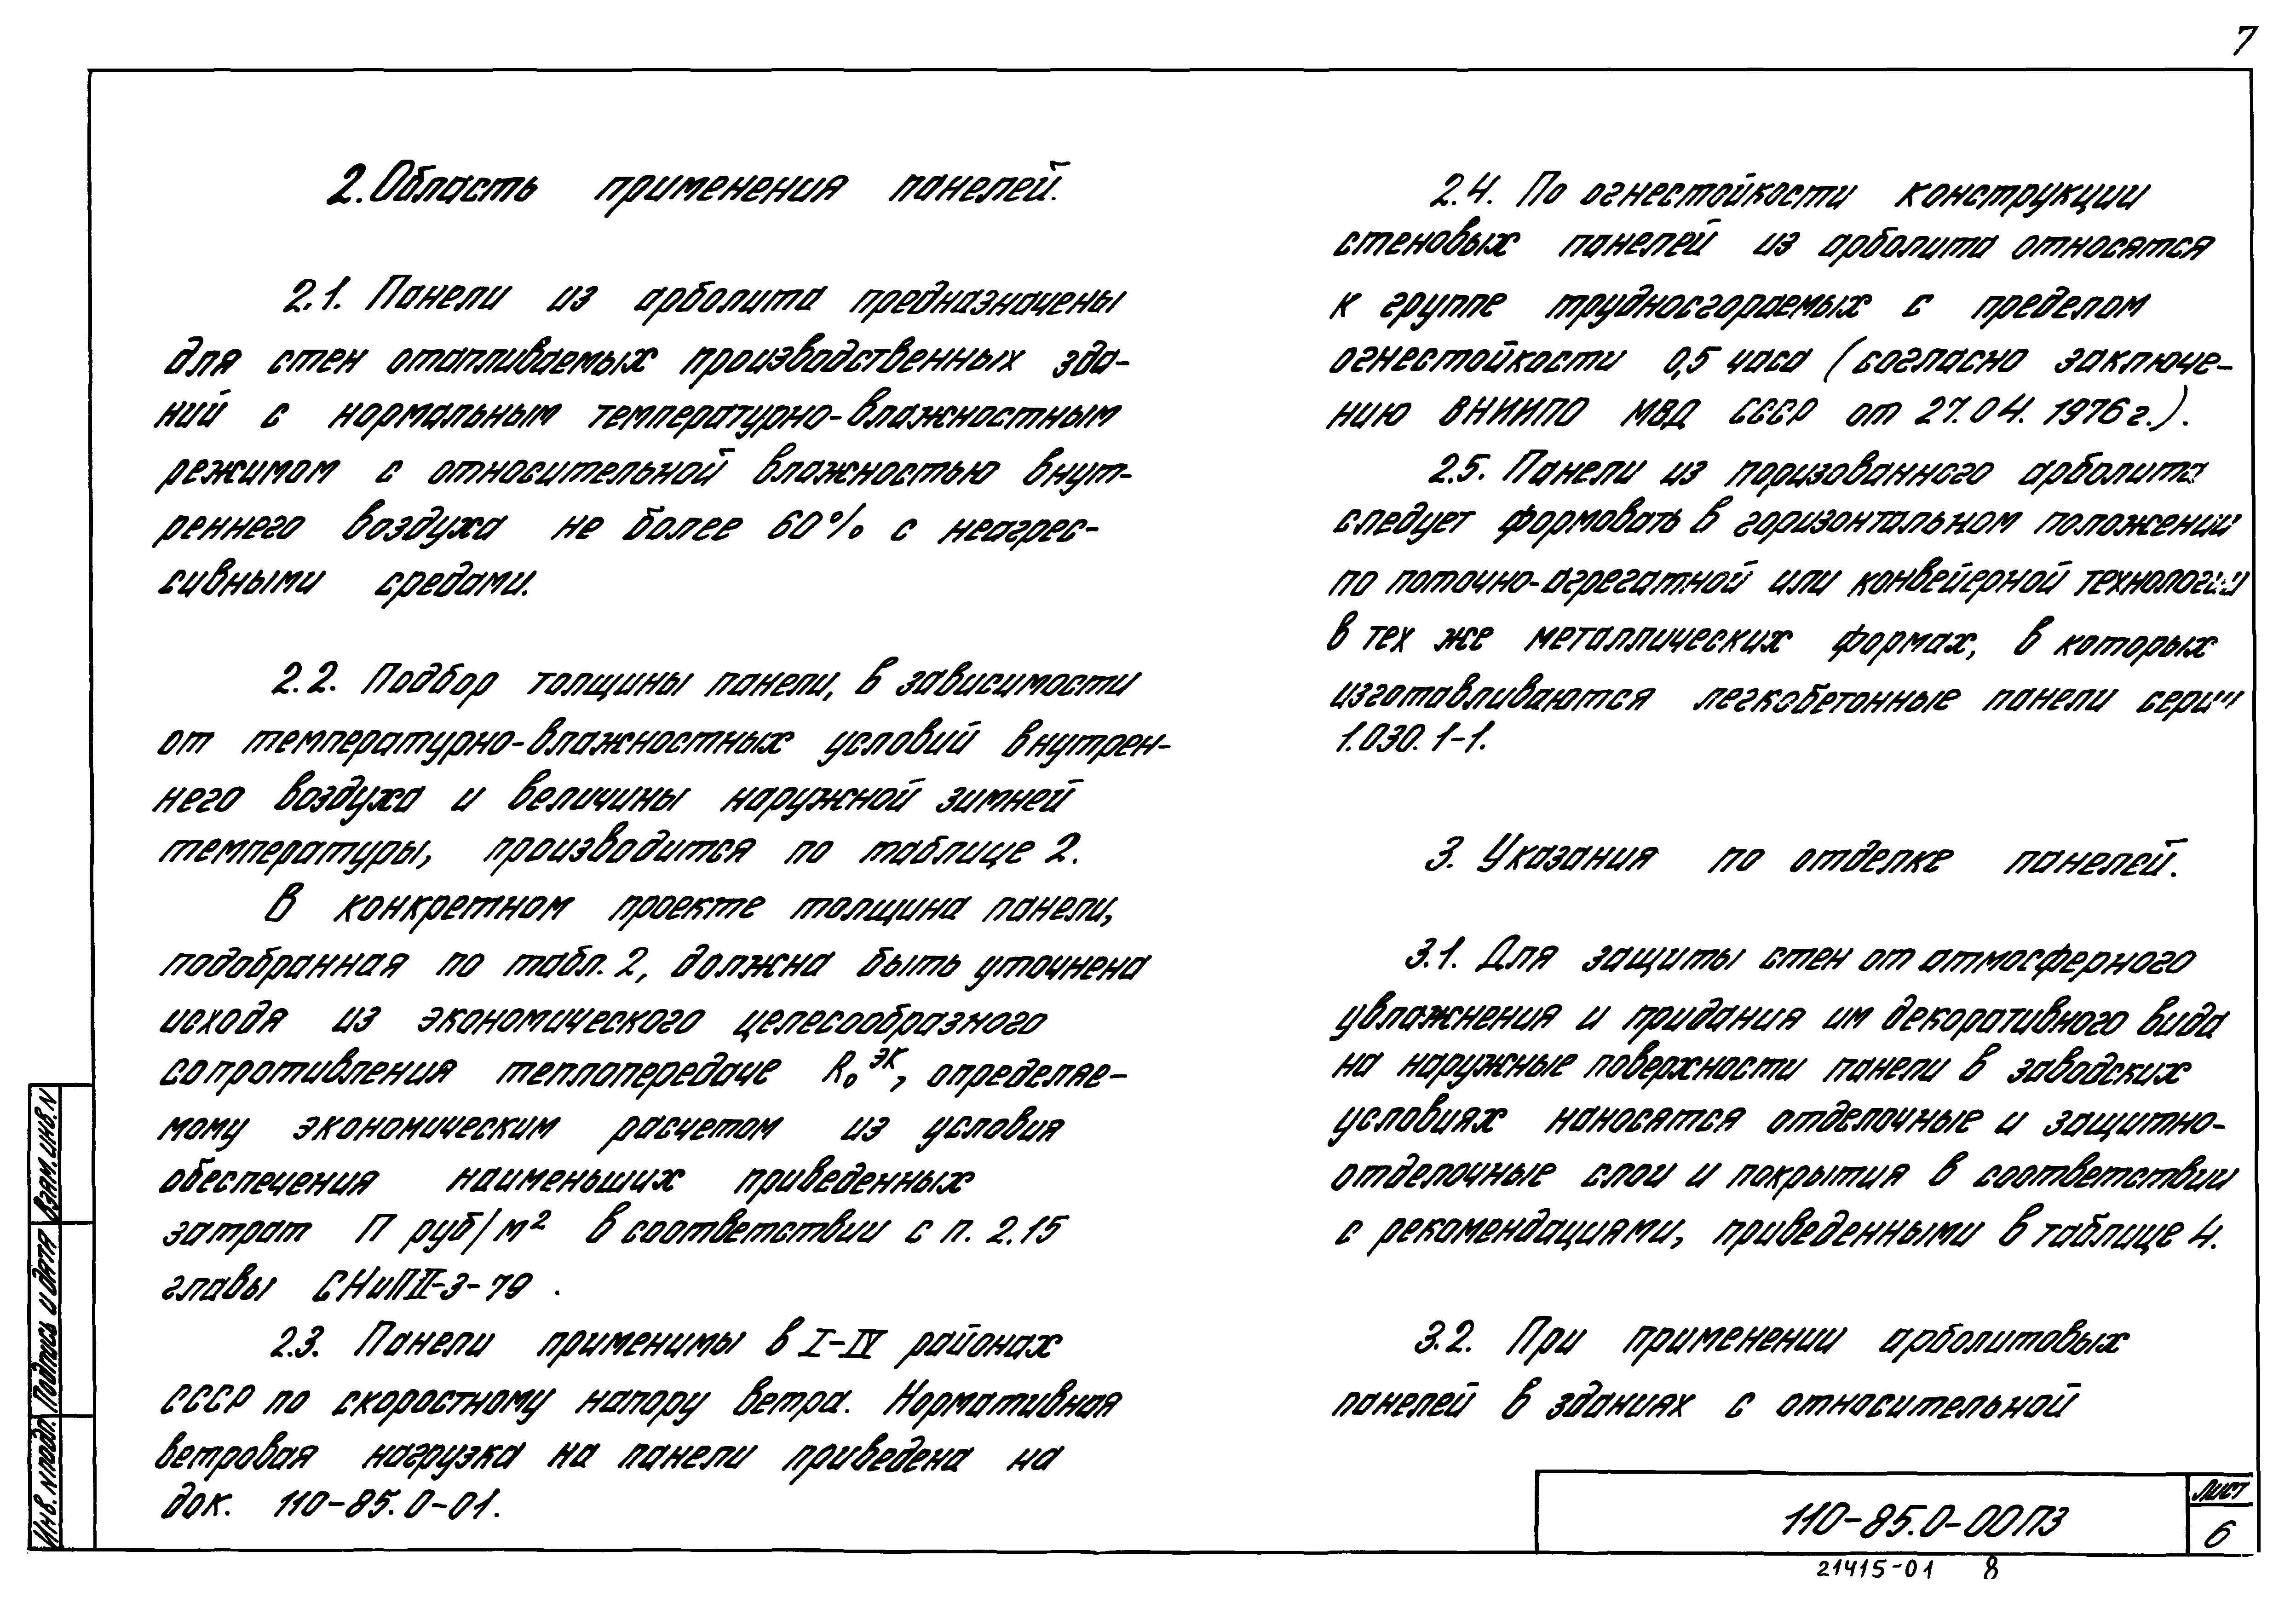 7
2. Область применения панелей.
2.1. Панели из арболита предназначены
для стен отапливаемых производственных зда-
ний с нормальным температурно-влажностным
режимом с относительной влажностью внут-
реннего воздуха не более 60% с неагрес-
сивными средами.
2.2. Подбор толщины панели, в зависимости
от температурно-влажностных условий внутрен-
него воздуха и величины наружной зимней
температуры, производится по таблице 2.
В конкретном проекте толщина панели,
подобранная по табл. 2, должна быть уточнена
исходя из экономического целесообразного
сопротивления теплопередаче R₀ ᴱᴷ, определяе-
мому экономическим расчетом из условия
обеспечения наименьших приведенных
затрат П руб/м² в соответствии с п. 2.15
главы СНиП II-3-79 .
2.3. Панели применимы в I-IV районах
СССР по скоростному напору ветра. Нормативная
ветровая нагрузка на панели приведена на
док. 110-85.0-01.
2.4. По огнестойкости конструкции
стеновых панелей из арболита относятся
к группе трудносгораемых с пределом
огнестойкости 0,5 часа (согласно заключе-
нию ВНИИПО МВД СССР от 27.04. 1976 г.).
2.5. Панели из поризованного арболита
следует формовать в горизонтальном положении
по поточно-агрегатной или конвейерной технологии
в тех же металлических формах, в которых
изготавливаются легкобетонные панели серии
1.030.1-1.
3. Указания по отделке панелей.
3.1. Для защиты стен от атмосферного
увлажнения и придания им декоративного вида
на наружные поверхности панели в заводских
условиях наносятся отделочные и защитно-
отделочные слои и покрытия в соответствии
с рекомендациями, приведенными в таблице 4.
3.2. При применении арболитовых
панелей в зданиях с относительной
Инв. N подл. Подпись и дата Взам. инв. N
110-85.0-00ПЗ
Лист
6
21415-01 8